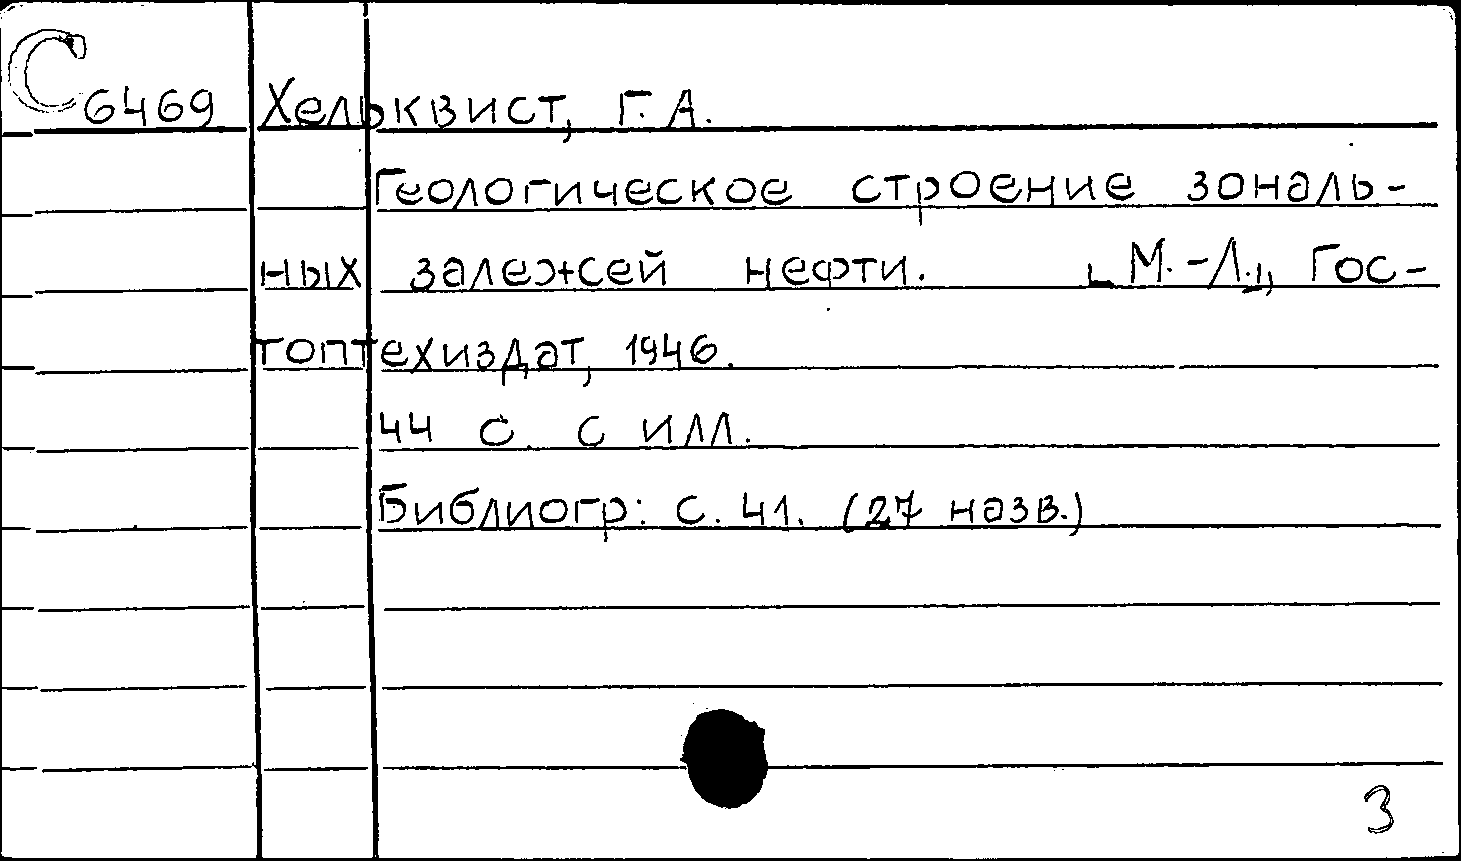 С 6469 Хельквист, Г. А.
Геологическое строение зональ-
ных залежей нефти. [М.-Л.], Гос-
топтехиздат, 1946.
44 с. с илл.
Библиогр: с. 41. (27 назв.)
3